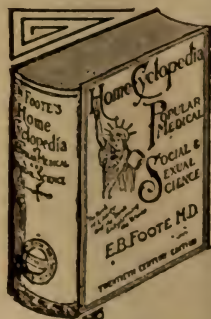 Dr FOOTE'S
Home
Cyclopedia
MEDICAL
SCIENCE
Home Cyclopedia
POPULAR
MEDICAL
SOCIAL &
SEXUAL
SCIENCE
E.B. FOOTE M.D.
TWENTIETH CENTURY EDITION